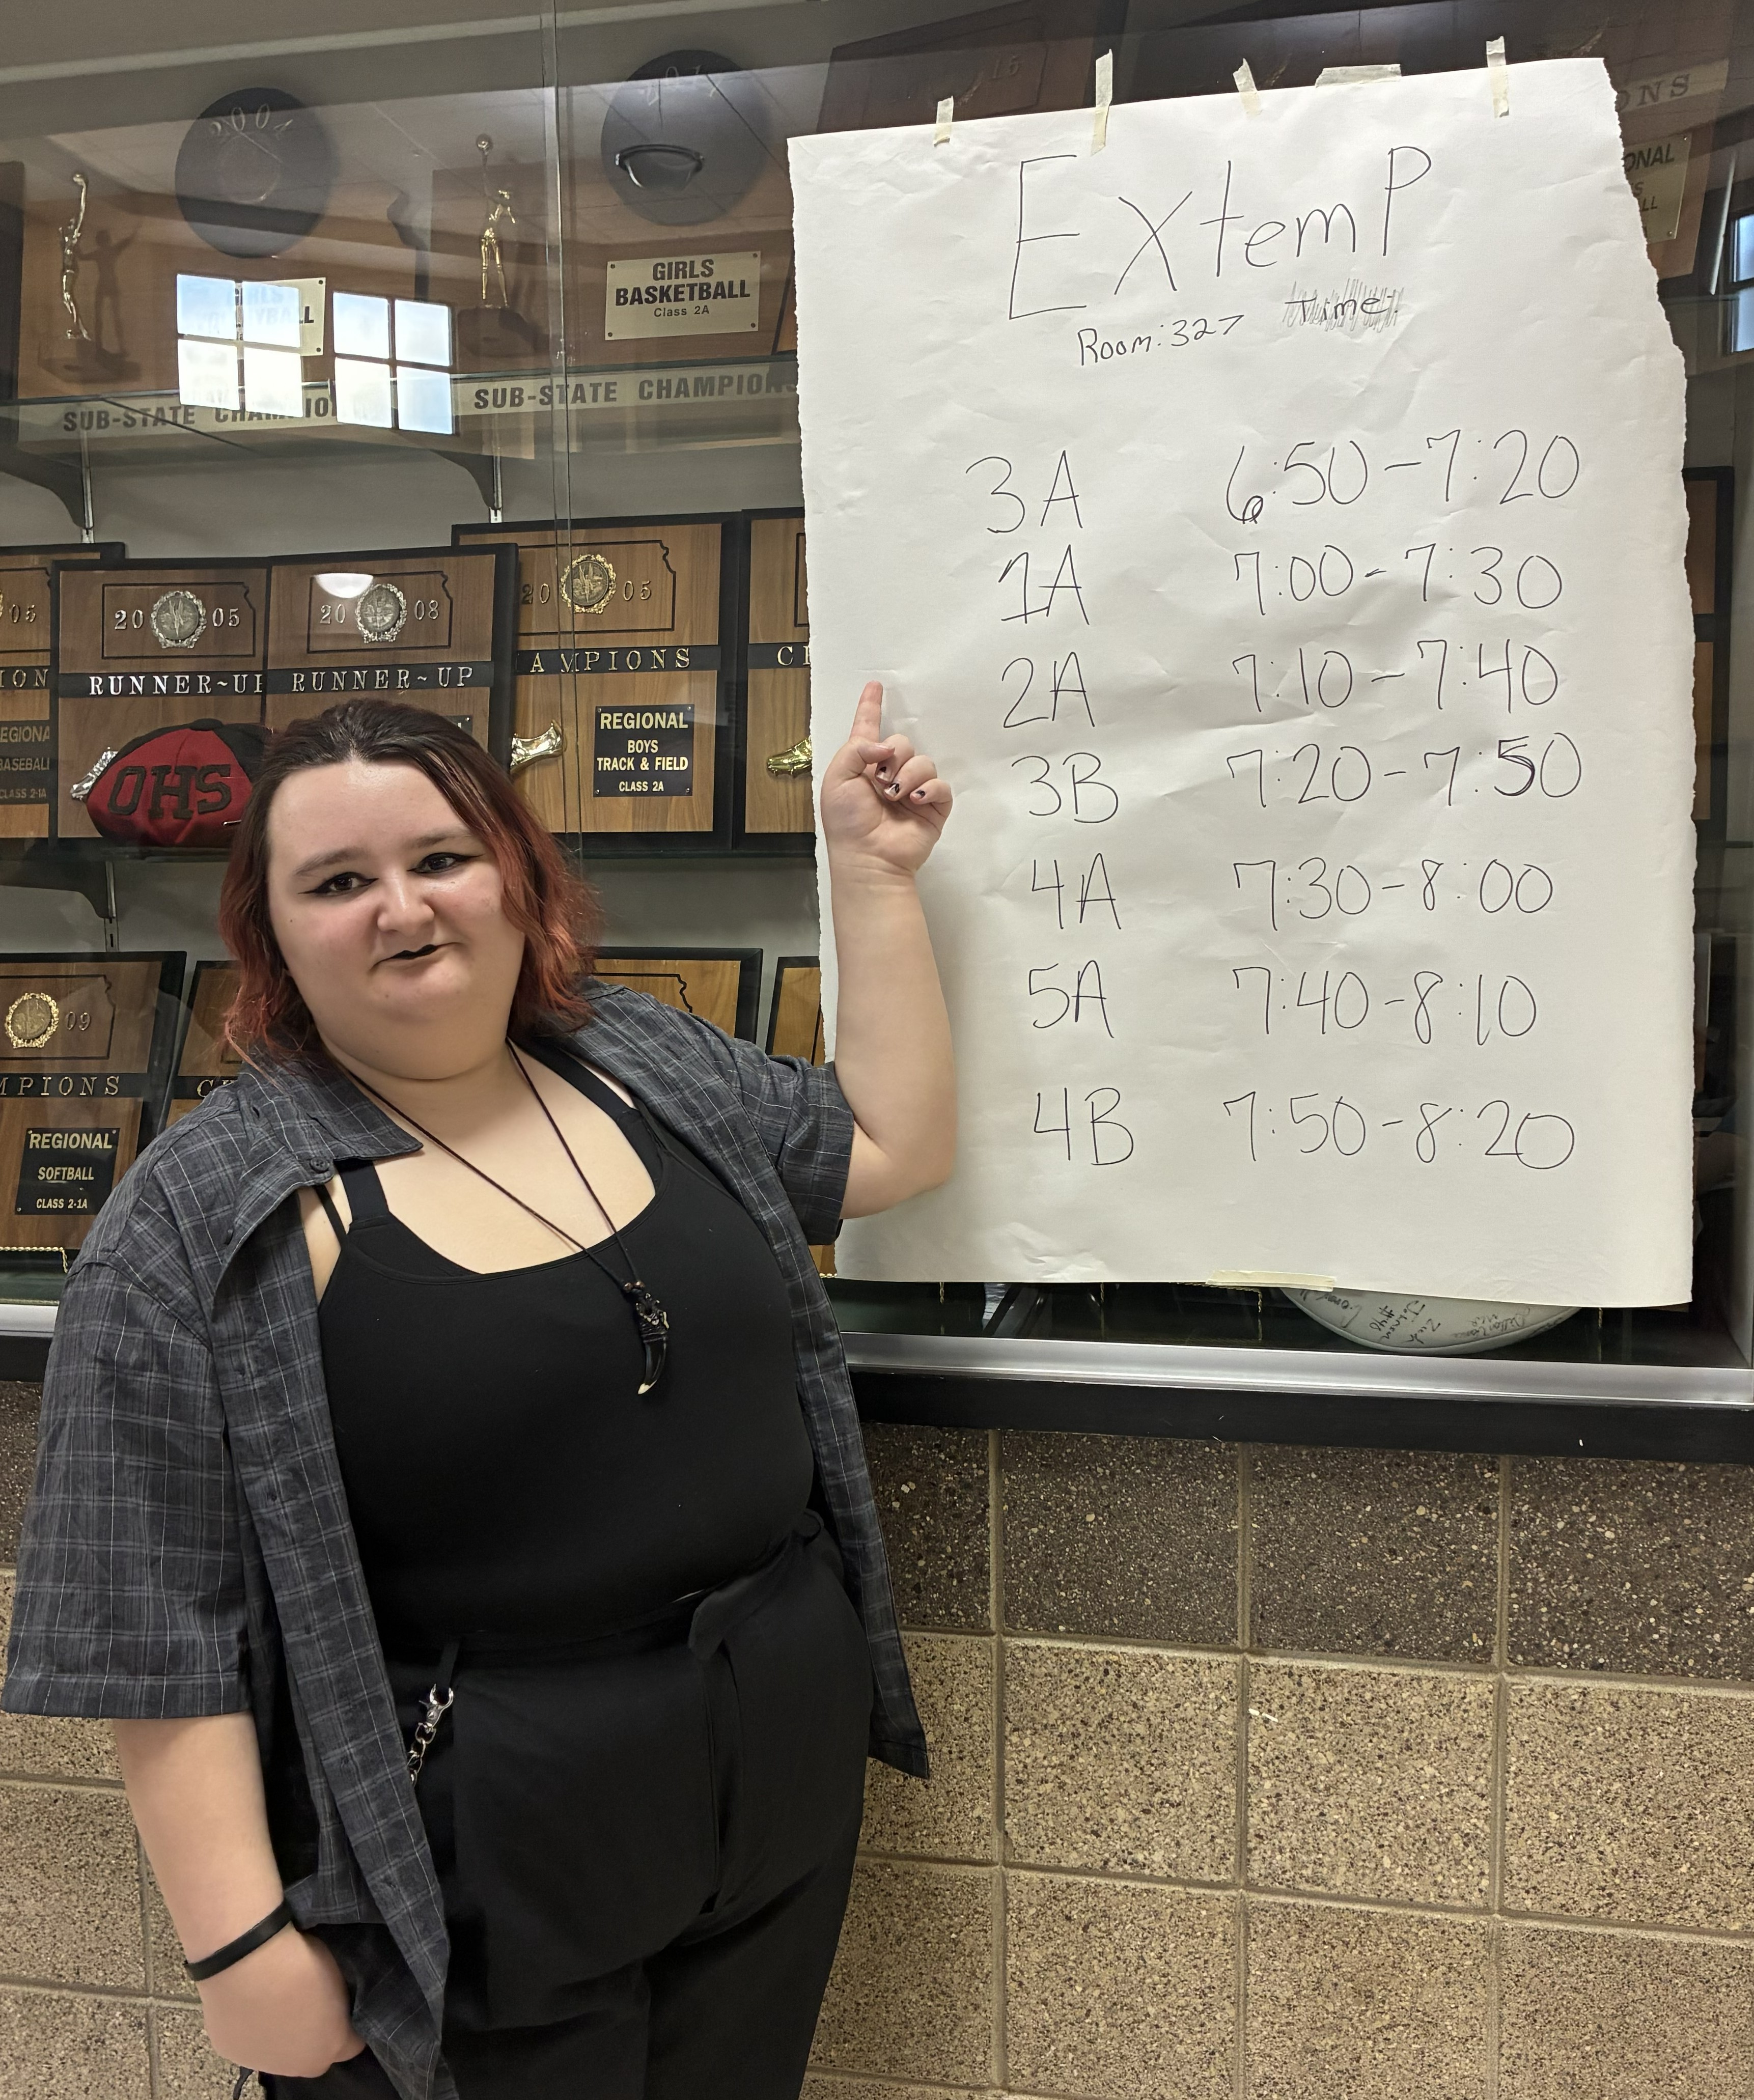 2004
GIRLS
BASKETBALL
Class 2A
SUB-STATE CHAMPION
SUB-STATE CHAMPION
15
ONS
ONAL
Extemp
Room: 327 Time:
3A 6:50-7:20
1A 7:00-7:30
2A 7:10-7:40
3B 7:20-7:50
4A 7:30-8:00
5A 7:40-8:10
4B 7:50-8:20
05
ION
EGIONA
BASEBALL
CLASS 2-1A
20 05
RUNNER~UP
20 08
RUNNER~UP
20 05
AMPIONS
REGIONAL
BOYS
TRACK & FIELD
CLASS 2A
OHS
09
MPIONS
REGIONAL
SOFTBALL
CLASS 2-1A